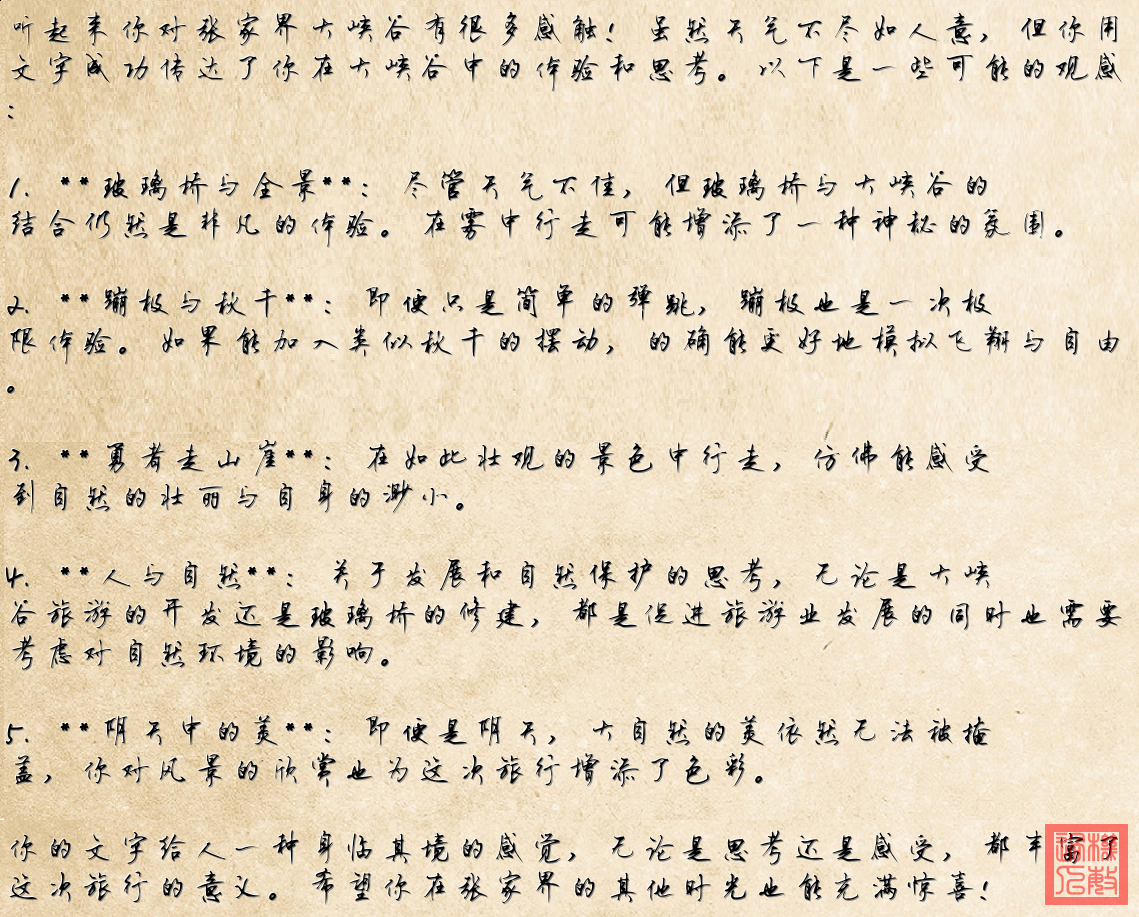 听起来你对张家界大峡谷有很多感触！虽然天气不尽如人意，但你用
文字成功传达了你在大峡谷中的体验和思考。以下是一些可能的观感
：
1. **玻璃桥与全景**：尽管天气不佳，但玻璃桥与大峡谷的
结合仍然是非凡的体验。在雾中行走可能增添了一种神秘的氛围。
2. **蹦极与秋千**：即便只是简单的弹跳，蹦极也是一次极
限体验。如果能加入类似秋千的摆动，的确能更好地模拟飞翔与自由
。
3. **勇者走山崖**：在如此壮观的景色中行走，仿佛能感受
到自然的壮丽与自身的渺小。
4. **人与自然**：关于发展和自然保护的思考，无论是大峡
谷旅游的开发还是玻璃桥的修建，都是促进旅游业发展的同时也需要
考虑对自然环境的影响。
5. **阴天中的美**：即便是阴天，大自然的美依然无法被掩
盖，你对风景的欣赏也为这次旅行增添了色彩。
你的文字给人一种身临其境的感觉，无论是思考还是感受，都丰富了
这次旅行的意义。希望你在张家界的其他时光也能充满惊喜！